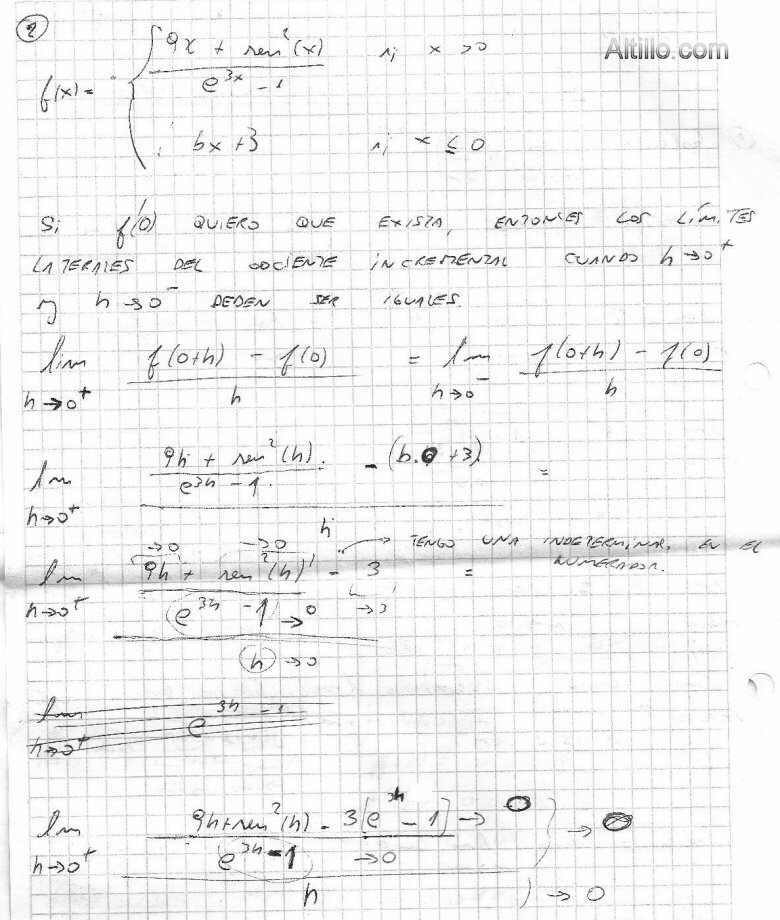 2
Altillo.com
f(x) = { (9x + sen²(x)) / (e^{3x} - 1) si x > 0
bx + 3 si x ≤ 0
Si f'(0) QUIERO QUE EXISTA, ENTONCES LOS LÍMITES
LATERALES DEL COCIENTE INCREMENTAL CUANDO h→0⁺
y h→0⁻ DEDEN SER IGUALES.
lim h→0⁺ (f(0+h) - f(0)) / h = lim h→0⁻ (f(0+h) - f(0)) / h
lim h→0⁺ ((9h + sen²(h)) / (e^{3h} - 1) - (b.0 + 3)) / h =
→0 →0 → TENGO UNA INDETERMINAC. EN EL
NUMERADOR.
lim h→0⁺ ((9h + sen²(h)) / (e^{3h} - 1) →0 - 3 →3) / (h →0) =
lim h→0⁺ e^{3h} - 1
lim h→0⁺ ((9h + sen²(h) - 3[e^{3h} - 1] → 0) / (e^{3h} - 1 →0)) → 0
h ) → 0